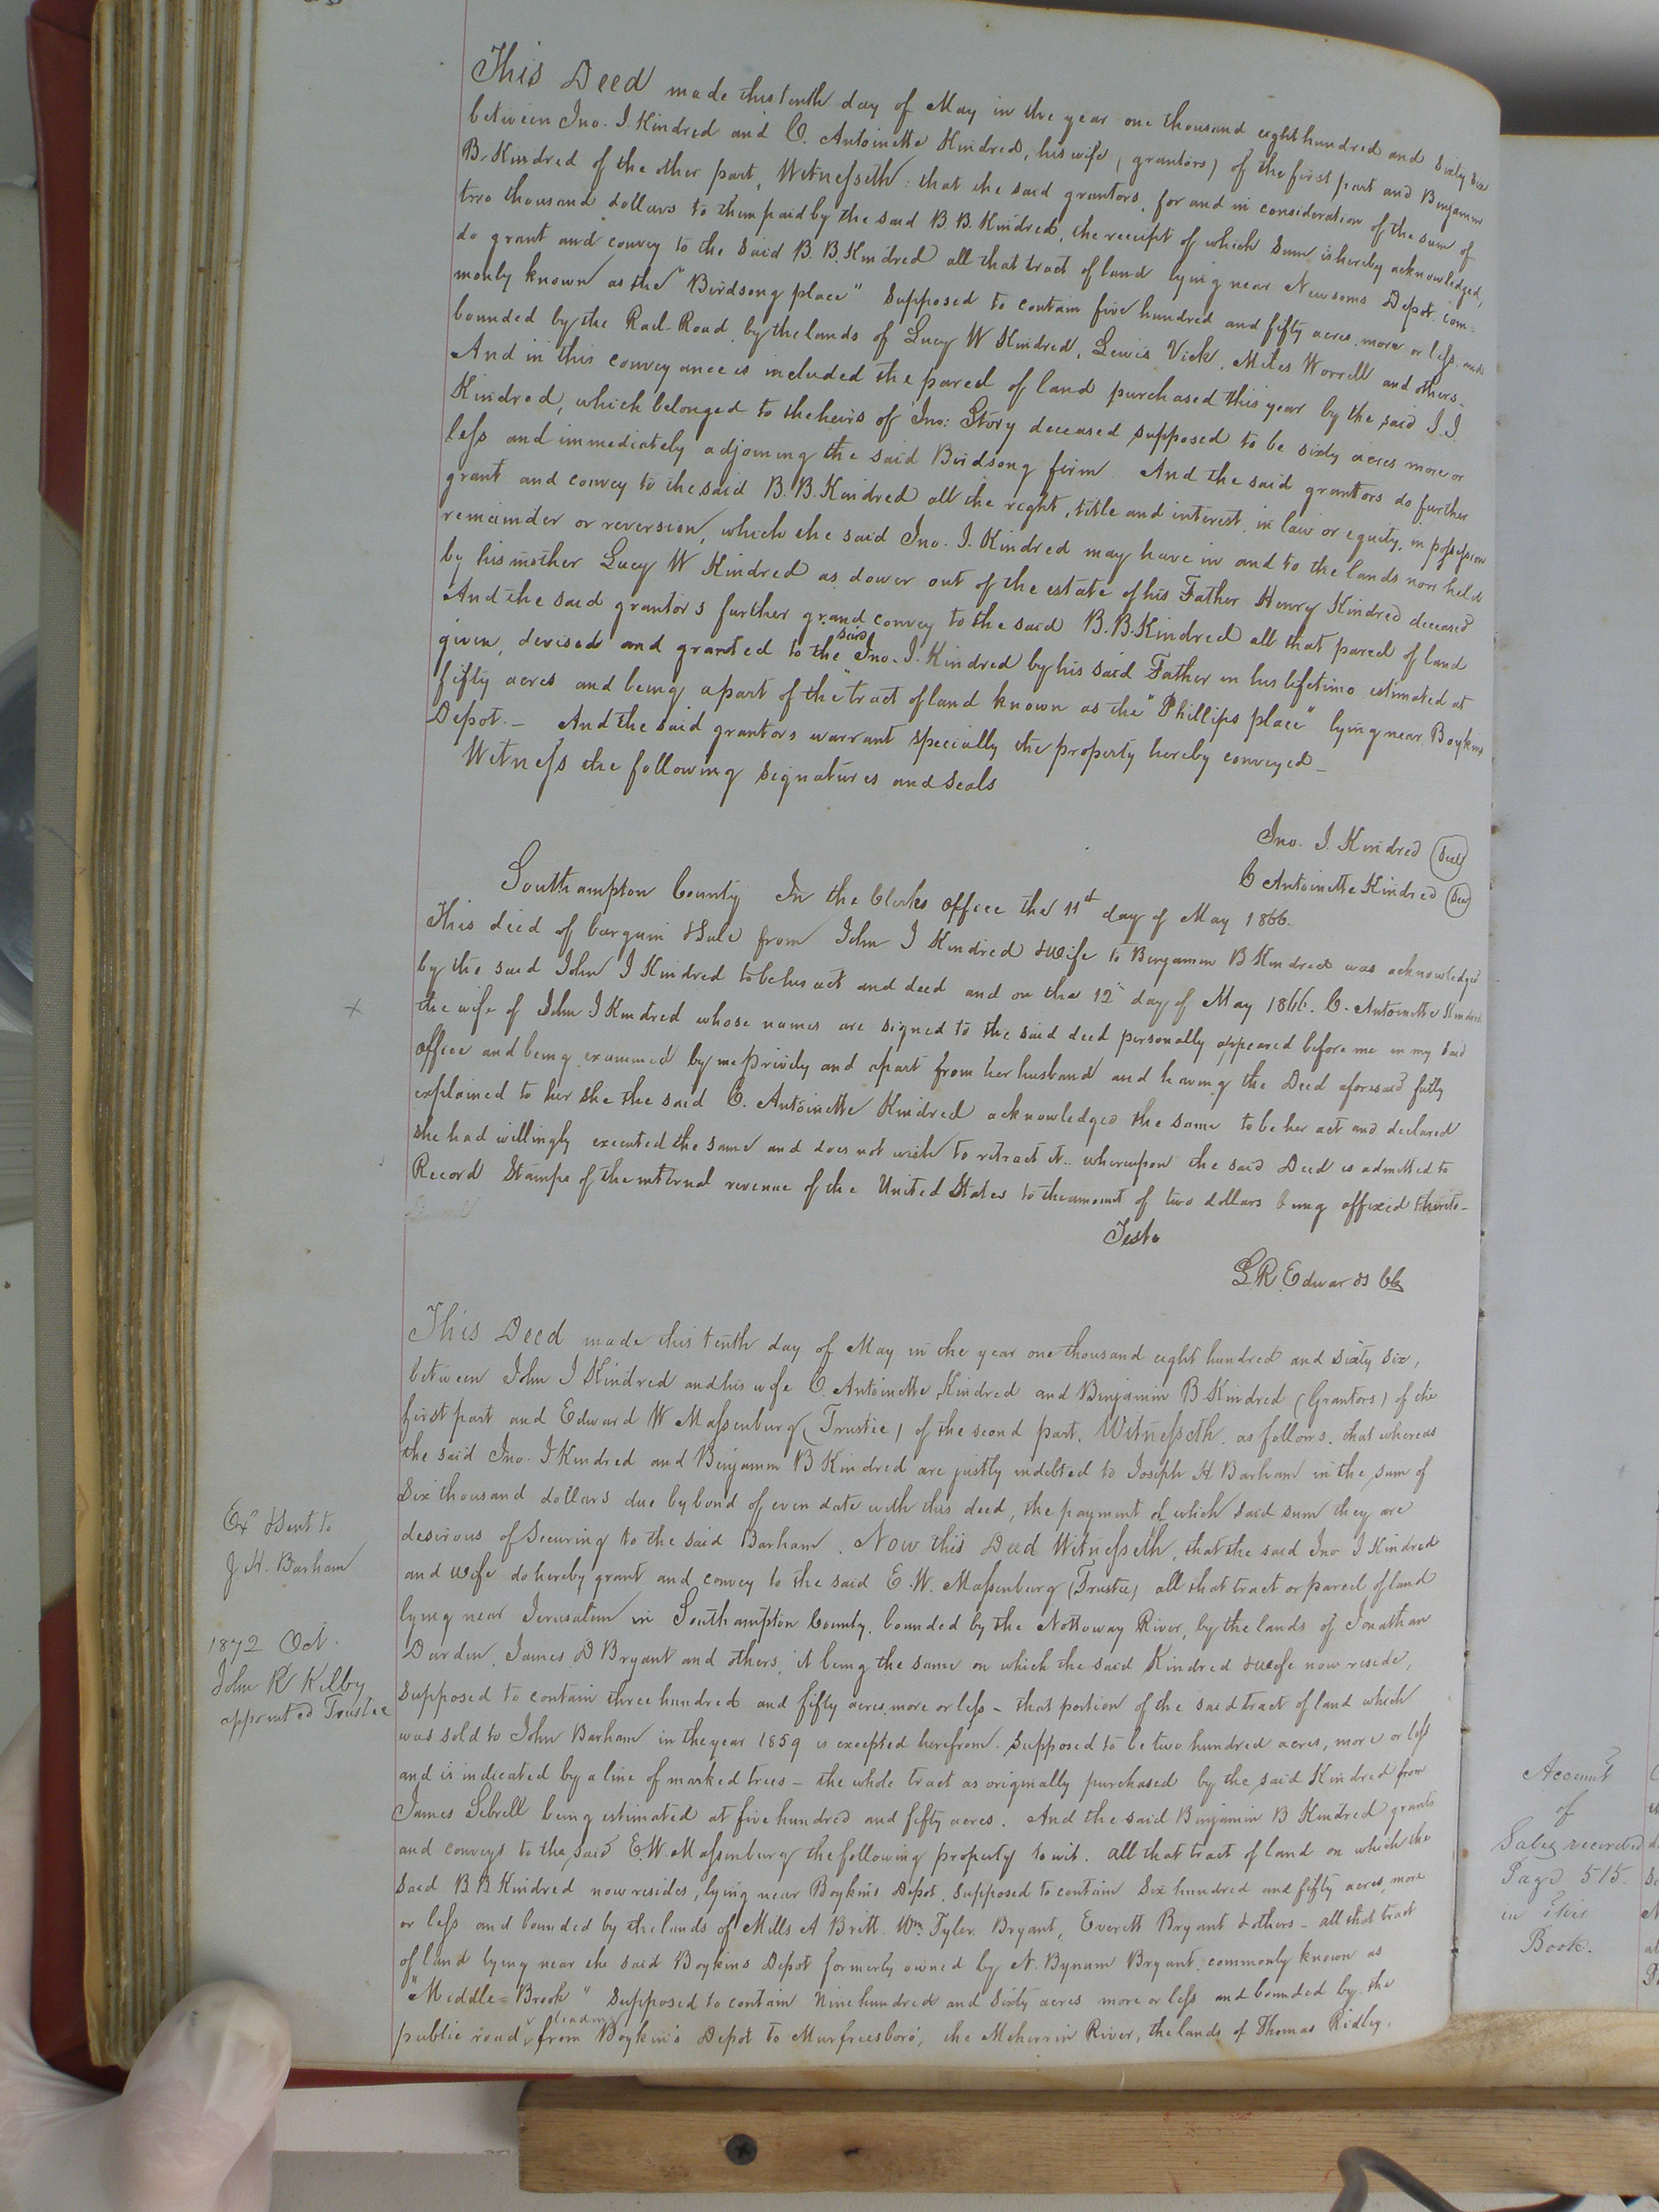 This Deed made this tenth day of May in the year one thousand eight hundred and sixty six
between Jno. J. Kindred and C. Antoinette Kindred, his wife, (grantors) of the first part and Benjamin
B. Kindred of the other part, Witnesseth: that the said grantors, for and in consideration of the sum of
two thousand dollars to them paid by the said B. B. Kindred, the receipt of which sum is hereby acknowledged,
do grant and convey to the said B. B. Kindred all that tract of land lying near Newsoms Depot. com=
monly known as the "Birdsong place" supposed to contain five hundred and fifty acres more or less. and
bounded by the Rail-Road, by the lands of Lucy W Kindred, Lewis Vick, Miles Worrell and others-
And in this conveyance is included the parcel of land purchased this year by the said J. J.
Kindred, which belonged to the heirs of Jno: Story deceased supposed to be sixty acres more or
less and immediately adjoining the said Birdsong firm And the said grantors do further
grant and convey to the said B. B. Kindred all the right, title and interest, in law or equity, in possession
remainder or reversion, which the said Jno. J. Kindred may have in and to the lands now held
by his mother Lucy W Kindred as dower out of the estate of his Father Henry Kindred deceased
And the said grantors further grand convey to the said B. B. Kindred all that parcel of land
given, devised and granted to the said Jno. J. Kindred by his said Father in his lifetime estimated at
fifty acres and being a part of the tract of land known as the "Phillips place" lying near Boykins
Depot. - And the said grantors warrant specially the property hereby conveyed -
Witness the following signatures and seals
Jno. J. Kindred (Seal)
C Antoinette Kindred (Seal)
Southampton County In the Clerks office the 11th day of May 1866.
This deed of bargain & Sale from John J Kindred & wife to Benjamin B Kindred was acknowledged
by the said John J Kindred to be his act and deed and on the 12th day of May 1866. C. Antoinette Kindred
the wife of John J Kindred whose names are signed to the said deed personally appeared before me in my said
office and being examined by me privily and apart from her husband and having the Deed aforesaid fully
explained to her she the said C. Antoinette Kindred acknowledged the same to be her act and declared
she had willingly executed the same and does not wish to retract it.. whereupon the said Deed is admitted to
Record Stamps of the internal revenue of the United States to the amount of two dollars being affixed thereto -
Teste
L. R. Edwards CC
This Deed made this tenth day of May in the year one thousand eight hundred and sixty six,
between John J Kindred and his wife C. Antoinette Kindred and Benjamin B Kindred (Grantors) of the
first part and Edward W Massenburg (Trustee) of the second part. Witnesseth. as follows. that whereas
the said Jno. J Kindred and Benjamin B Kindred are justly indebted to Joseph H Barham in the sum of
Six thousand dollars due by bond of even date with this deed, the payment of which said sum they are
desirous of securing to the said Barham. Now this Deed Witnesseth, that the said Jno J Kindred
and wife do hereby grant and convey to the said E. W. Massenburg (Trustee) all that tract or parcel of land
lying near Jerusalem in Southampton County, bounded by the Nottoway River, by the lands of Jonathan
Darden, James D Bryant and others, it being the same on which the said Kindred & wife now reside,
supposed to contain three hundred and fifty acres more or less - that portion of the said tract of land which
was sold to John Barham in the year 1859 is excepted herefrom. Supposed to be two hundred acres, more or less
and is indicated by a line of marked trees - the whole tract as originally purchased by the said Kindred from
James Sebrell being estimated at five hundred and fifty acres. And the said Benjamin B Kindred grants
and conveys to the said E. W. Massenburg the following property to wit. all that tract of land on which the
said B. B Kindred now resides, lying near Boykins Depot, supposed to contain six hundred and fifty acres, more
or less and bounded by the lands of Mills A Britt. Wm. Tyler. Bryant, Everett Bryant & others - all that tract
of land lying near the said Boykins Depot formerly owned by N. Bynum Bryant. commonly known as
"Middle=Brook" supposed to contain nine hundred and sixty acres more or less and bounded by the
public road leading from Boykin's Depot to Murfreesboro', the Meherrin River, the lands of Thomas Ridley.
Exd & Sent to
J. H. Barham
1872 Oct.
John R Kilby
appointed Trustee
Account
of
Sales recorded
Page 515.
in this
Book.